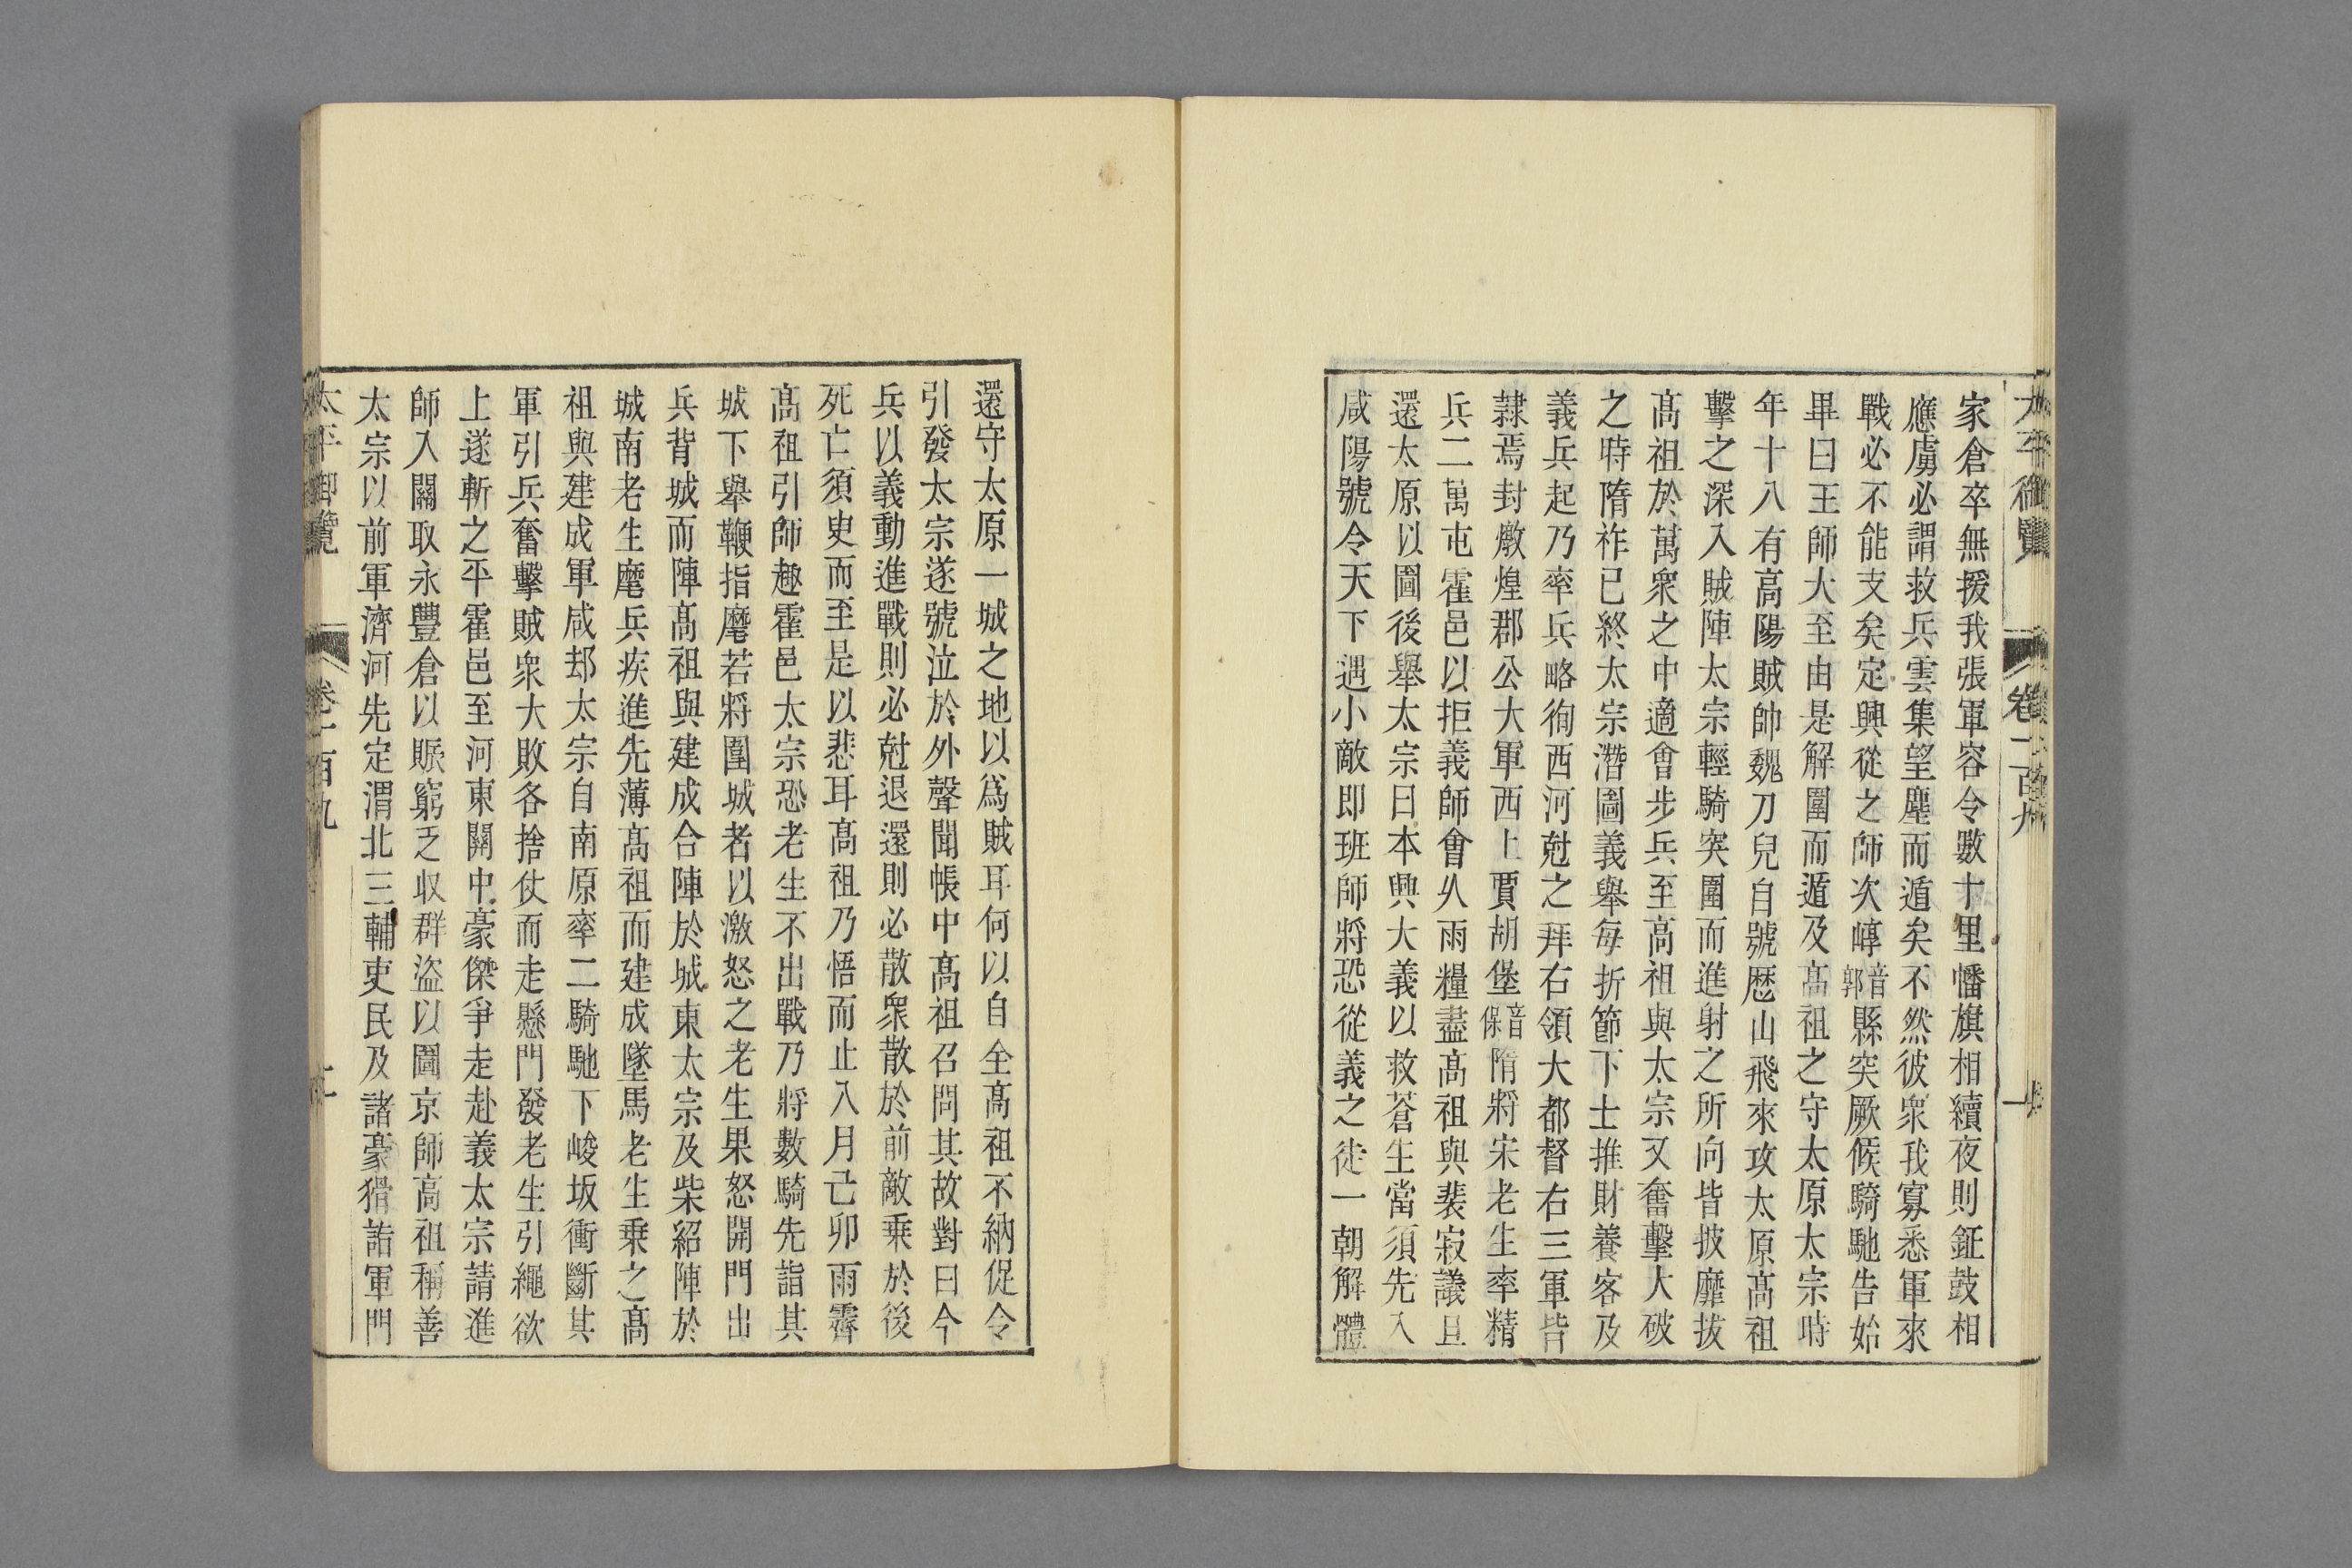 太平御覽　卷一百九
家倉卒無援我張軍容令數十里幡旗相續夜則鉦鼓相
應虜必謂救兵雲集望塵而遁矣不然彼衆我寡悉軍來
戰必不能支矣定興從之師次崞音郭縣突厥候騎馳告始
畢曰王師大至由是解圍而遁及髙祖之守太原太宗時
年十八有高陽賊帥魏刀兒自號歷山飛來攻太原髙祖
擊之深入賊陣太宗輕騎突圍而進射之所向皆披靡拔
髙祖於萬衆之中適會步兵至高祖與太宗又奮擊大破
之時隋祚已終太宗潛圖義舉每折節下士推財養客及
義兵起乃率兵略徇西河尅之拜右領大都督右三軍皆
隷焉封燉煌郡公大軍西上賈胡堡音保隋將宋老生率精
兵二萬屯霍邑以拒義師會乆雨糧盡髙祖與裴寂議且
還太原以圖後舉太宗曰本興大義以救蒼生當須先入
咸陽號令天下遇小敵即班師將恐從義之徒一朝解體
還守太原一城之地以爲賊耳何以自全髙祖不納促令
引發太宗遂號泣於外聲聞帳中髙祖召問其故對曰今
兵以義動進戰則必尅退還則必散衆散於前敵乗於後
死亡須史而至是以悲耳髙祖乃悟而止入月己卯雨霽
髙祖引師趣霍邑太宗恐老生不出戰乃將數騎先詣其
城下舉鞭指麾若將圍城者以激怒之老生果怒開門出
兵背城而陣髙祖與建成合陣於城東太宗及柴紹陣於
城南老生麾兵疾進先薄髙祖而建成墜馬老生乗之髙
祖與建成軍咸却太宗自南原率二騎馳下峻坂衝斷其
軍引兵奮擊賊衆大敗各捨仗而走懸門發老生引繩欲
上遂斬之平霍邑至河東關中豪傑爭走赴義太宗請進
師入關取永豐倉以賑窮乏収群盜以圖京師高祖稱善
太宗以前軍濟河先定渭北三輔吏民及諸豪猾詣軍門
太平御覽　卷一百九